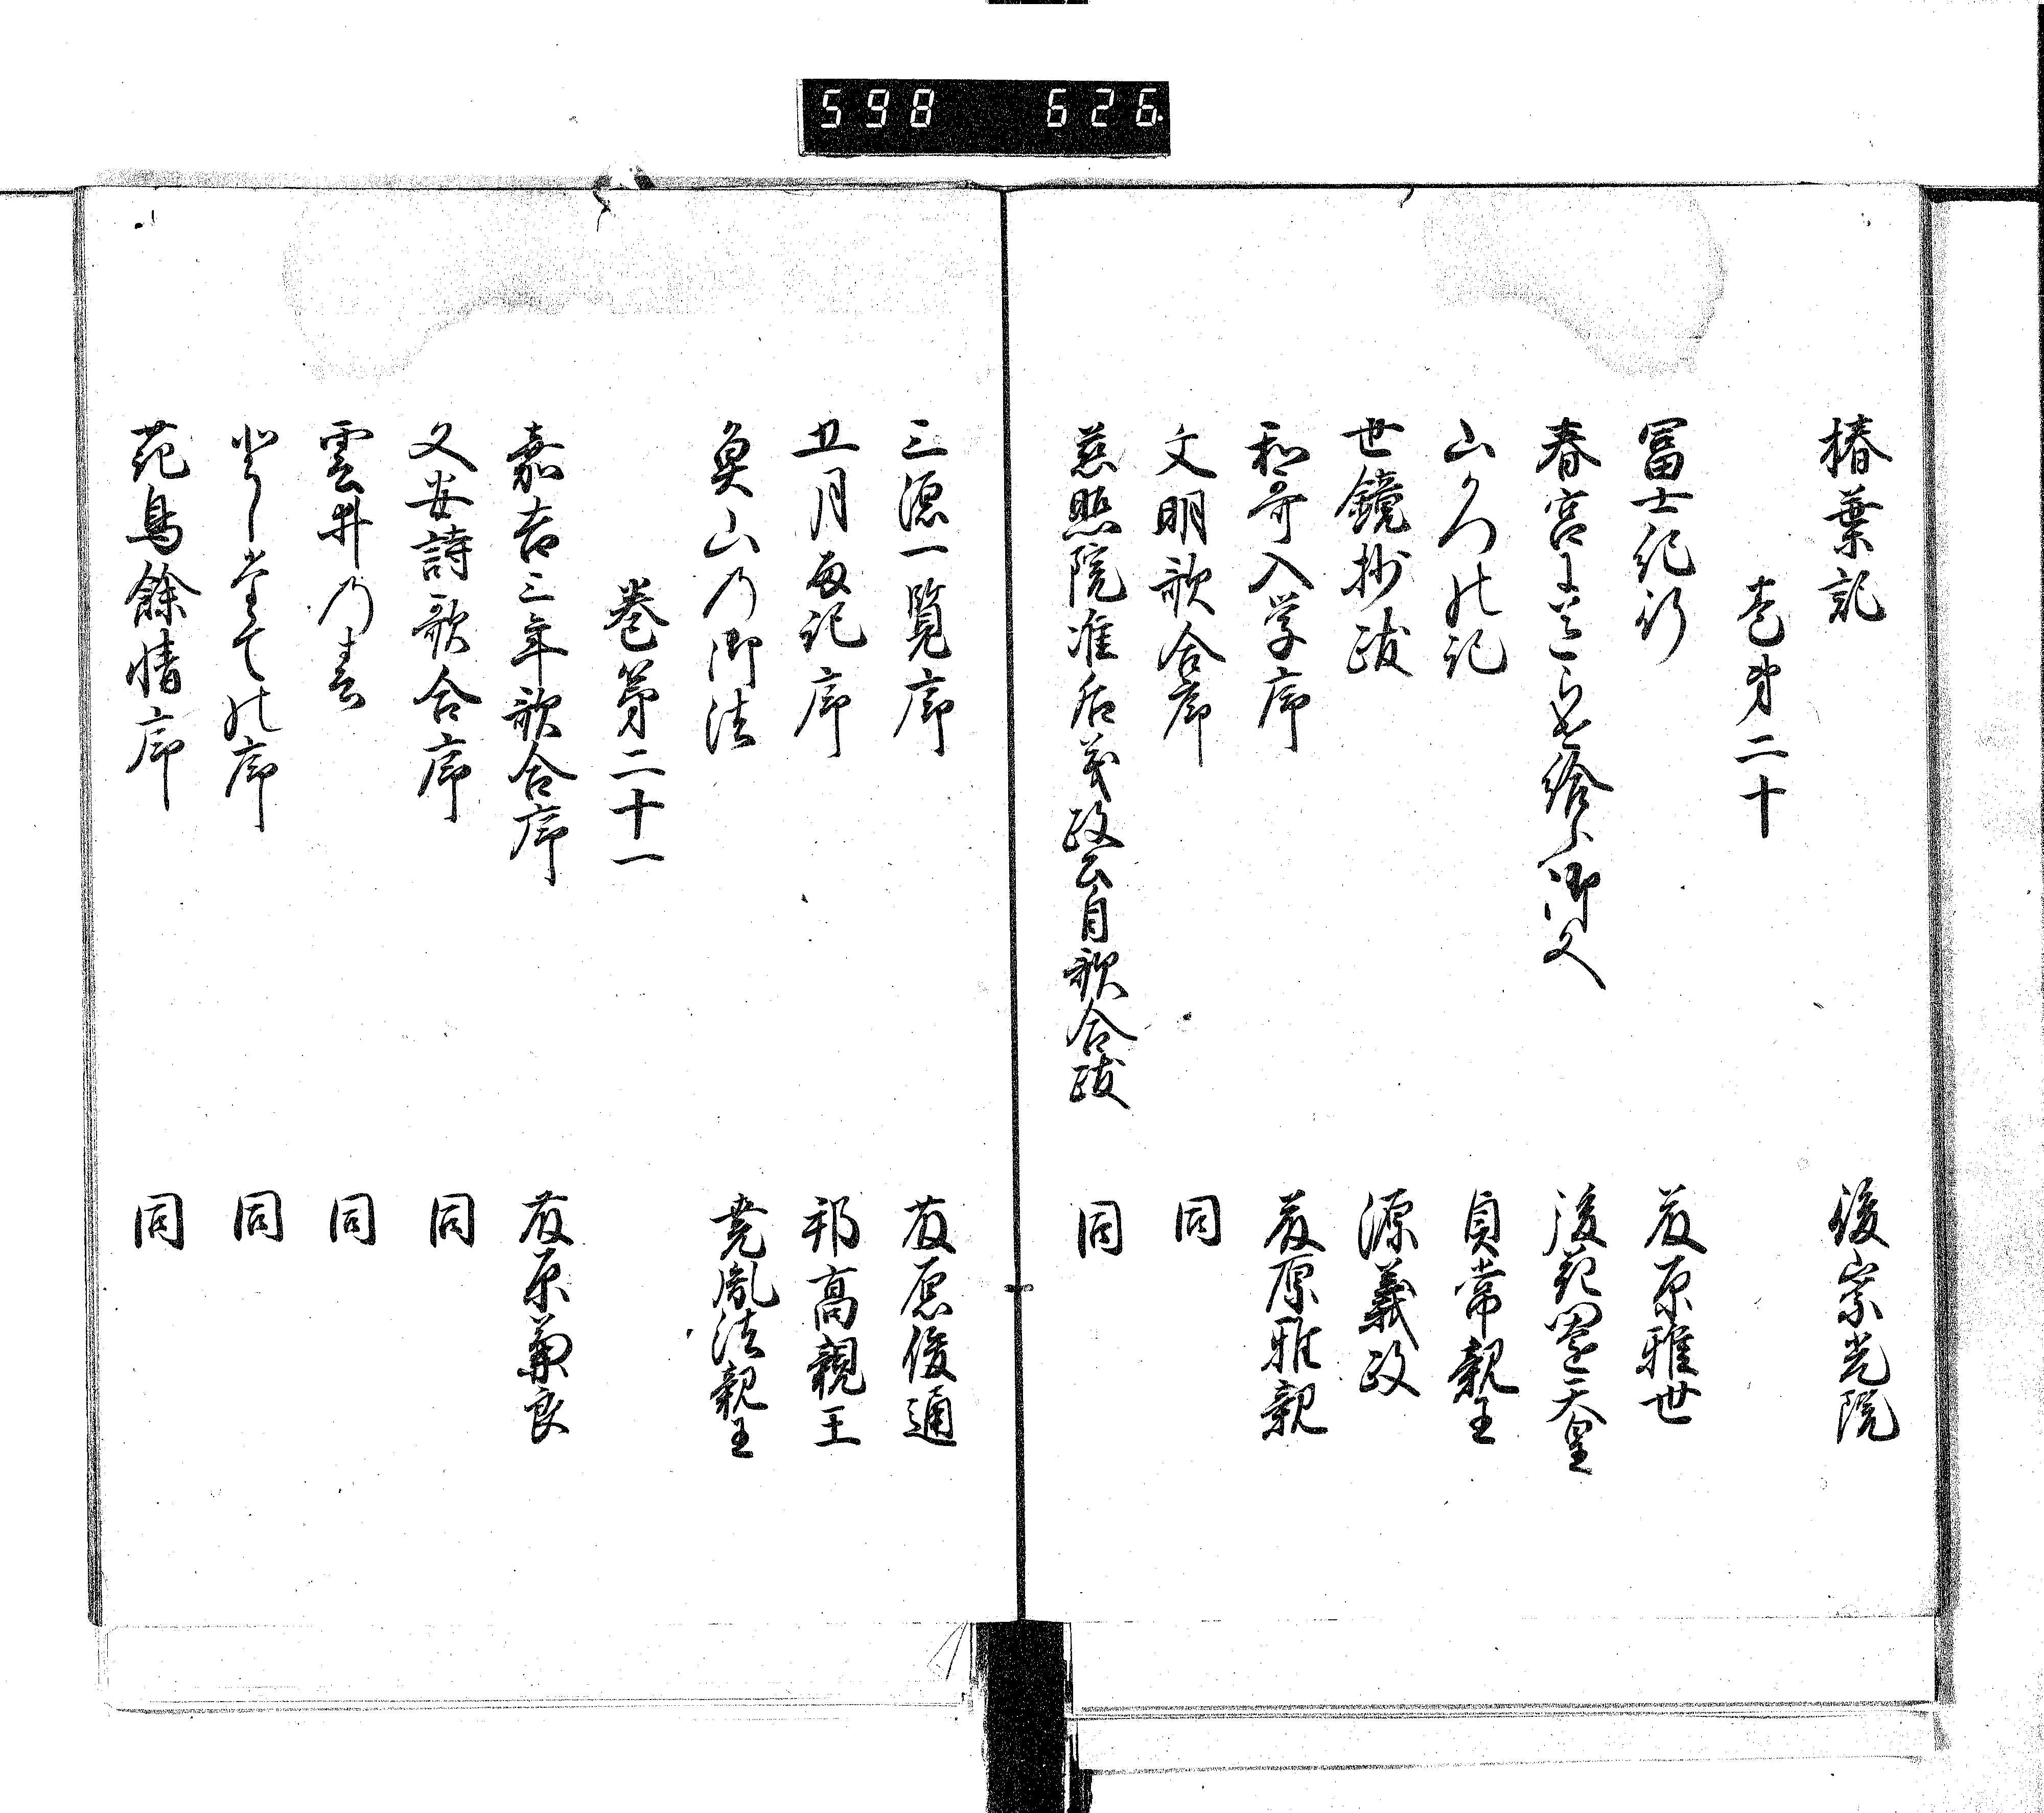 598 626.
椿葉記 後崇光院
巻第二十
冨士紀行 藤原雅世
春宮にまいらせ給ふ御文 後花園天皇
山かつの記 貞常親王
世鏡抄跋 源義政
和哥入学序 藤原雅親
文明歌合序 同
慈照院准后義政公自歌合跋 同
三源一覧序 藤原俊通
五月雨記序 邦高親王
魚山乃御法 尭胤法親王
巻第二十一
嘉吉三年歌合序 藤原兼良
文安詩歌合序 同
雲井乃春 同
の序 同
花鳥餘情序 同